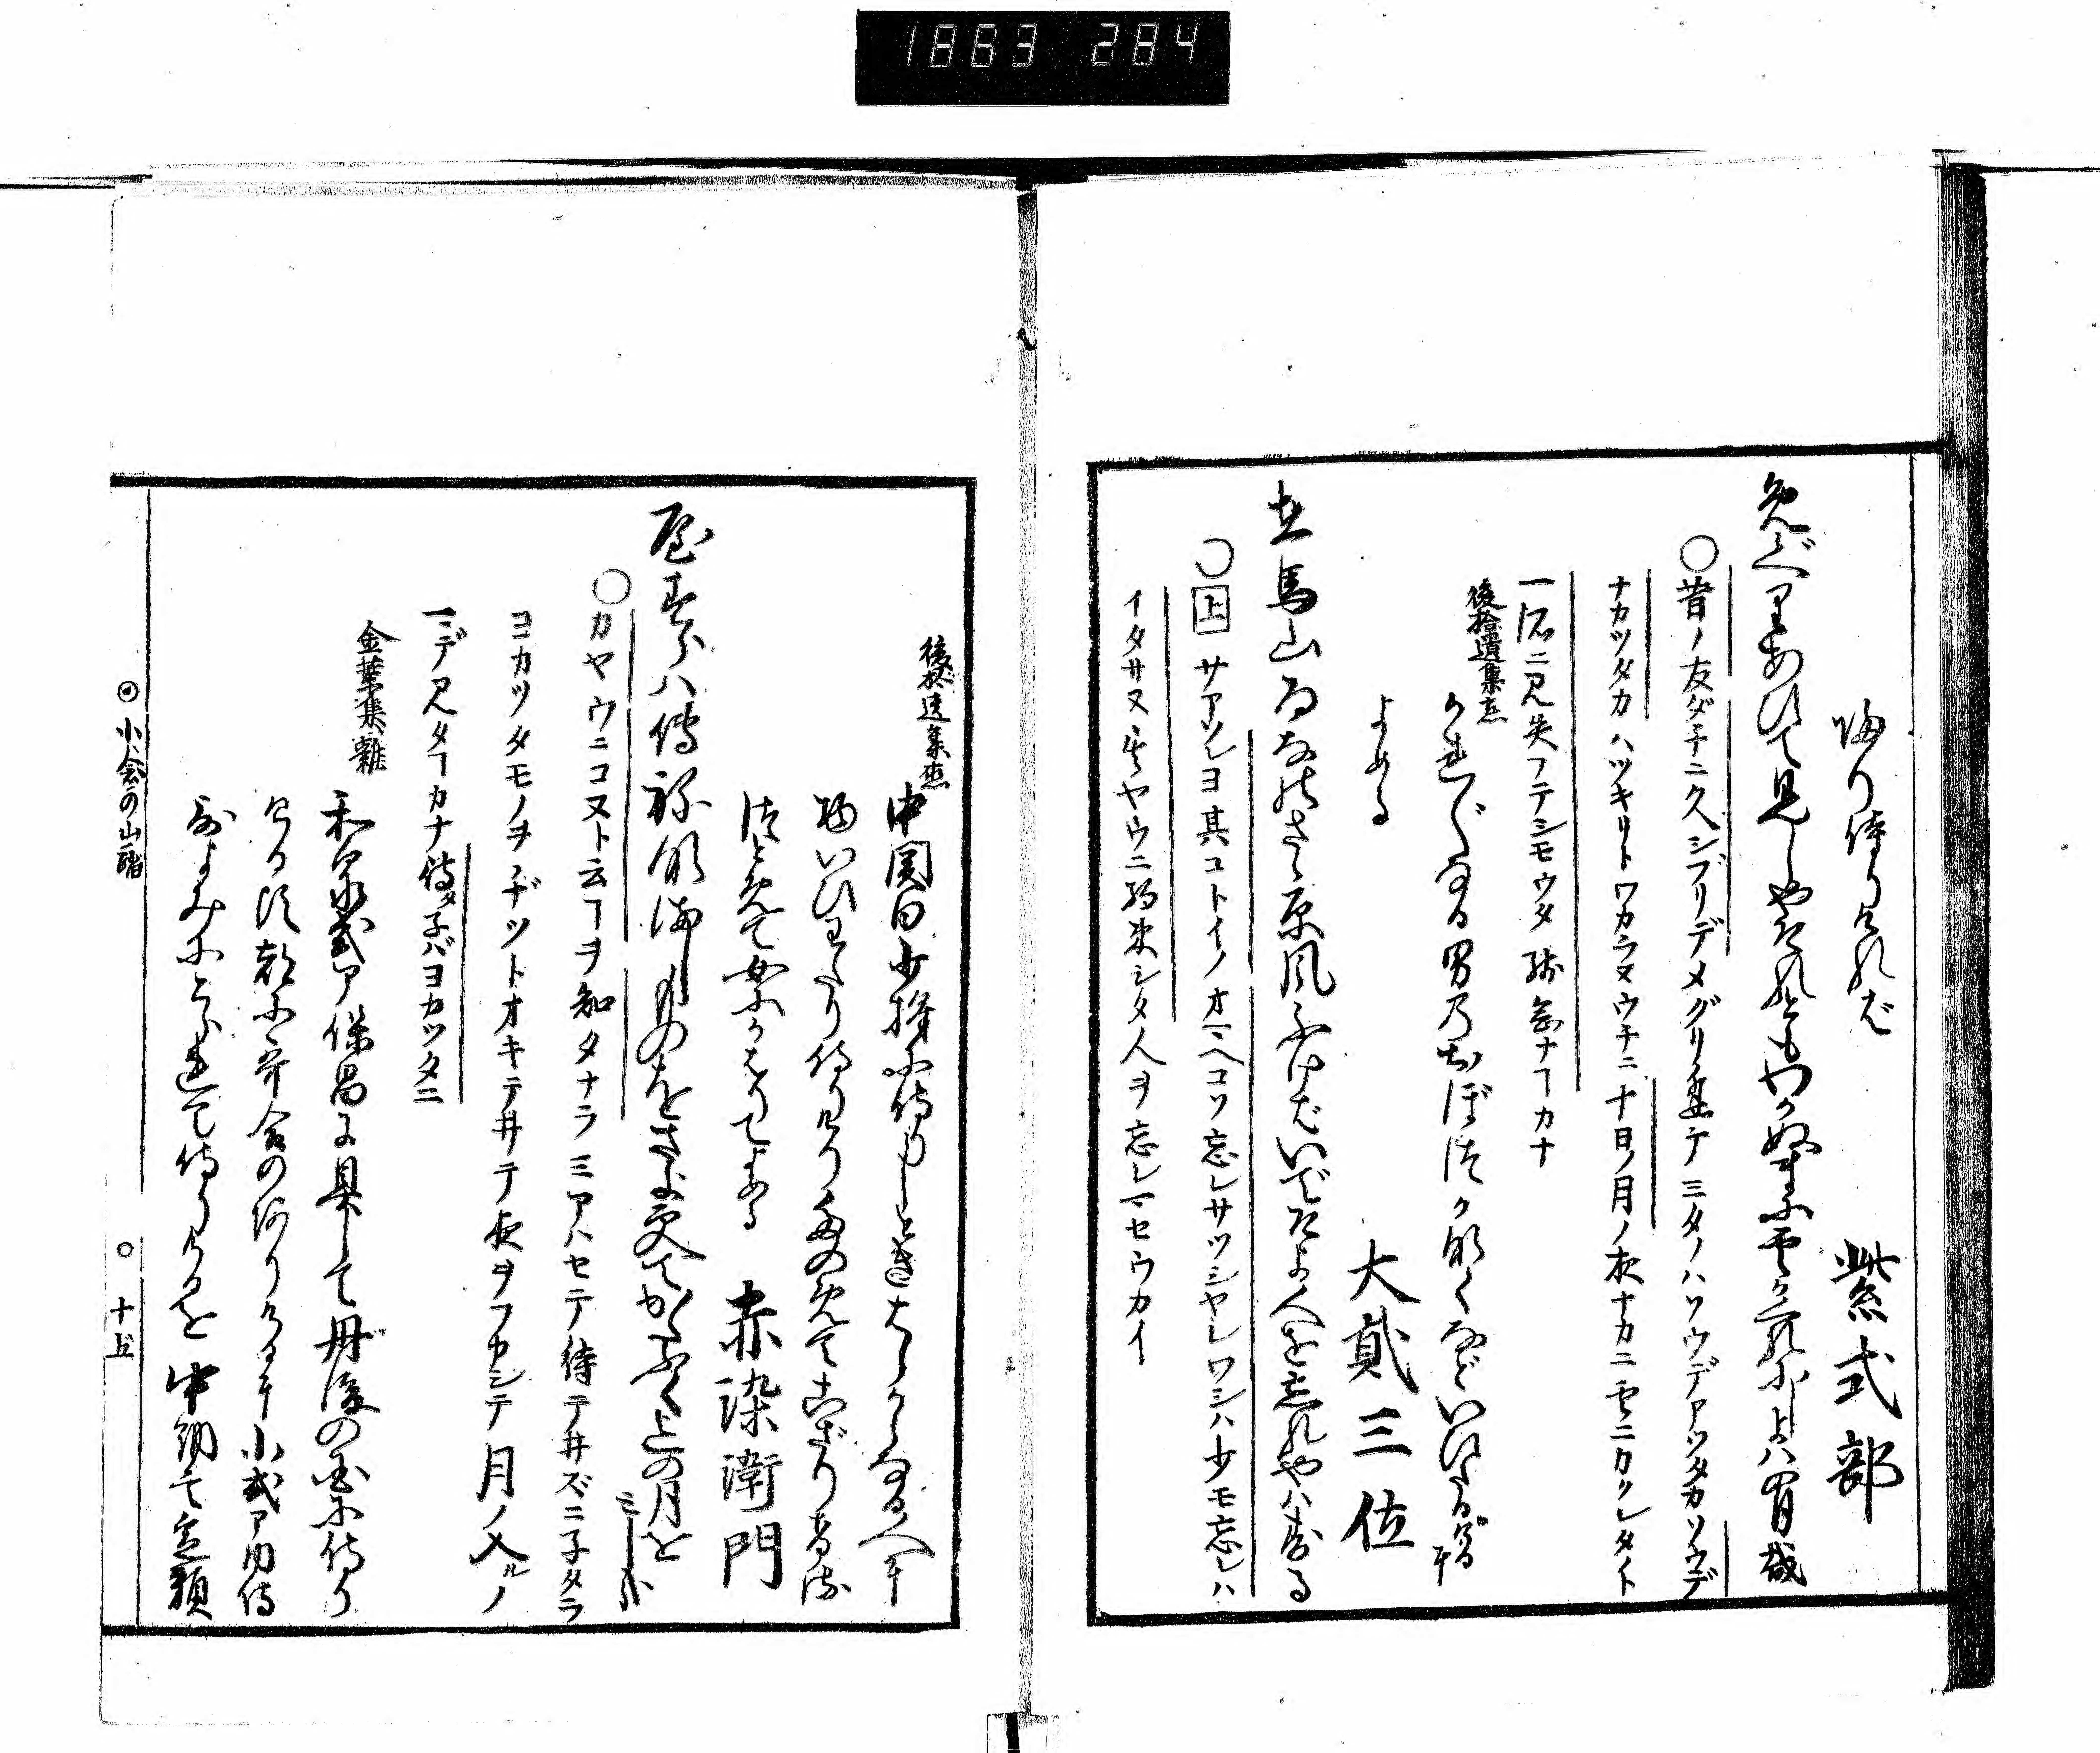 1863 284
帰り侍りけれバ
紫式部
免ぐりあひて見しやそれともわかぬまに雲がくれにし夜ハの月哉
○昔ノ友ダチニ久シブリデメグリ逢テ ミタノハソウデアツタカソウデ
ナカツタカ ハツキリトワカラヌウチニ 十日ノ月ノ夜ナカニ雲ニカクレタイト
一所ニ見失フテシモウタ 残念ナヿカナ
後拾遺集恋
かれ〴〵なる男のおぼつかなくなどいひたるに
よめる
大貳三位
有馬山ゐなのさゝ原風ふけばいでそよ人を忘れやハする
○上 サアソレヨ其コトイノ オマヘコソ忘レサツシヤレ ワシハ少モ忘レハ
イタサヌ 其ヤウニ約束シタ人ヲ忘レマセウカイ
後拾遺集恋
中関白少将に侍りしときはらからなる人に
物いひわたり侍りけりたのめてこざりける
つとめて女にかはりてよめる
赤染衛門
屋すらハで祢なましものをさよ更てかたぶくまでの月を
みしかな
○カヤウニコヌト云ヿヲ知タナラ ミアハセテ待テ井ズニ子タラ
ヨカツタモノヲ ヂツトオキテ井テ夜ヲフカシテ 月ノ入ルノ
マデ見タヿカナ 待タ子バヨカツタニ
金葉集雑
和泉式ア保昌に具して丹後の国に侍り
ける頃都に哥合の有りけるに小式ア内侍
哥よみにとられて侍りけるを 中納言定頼
小倉の山踏
十五